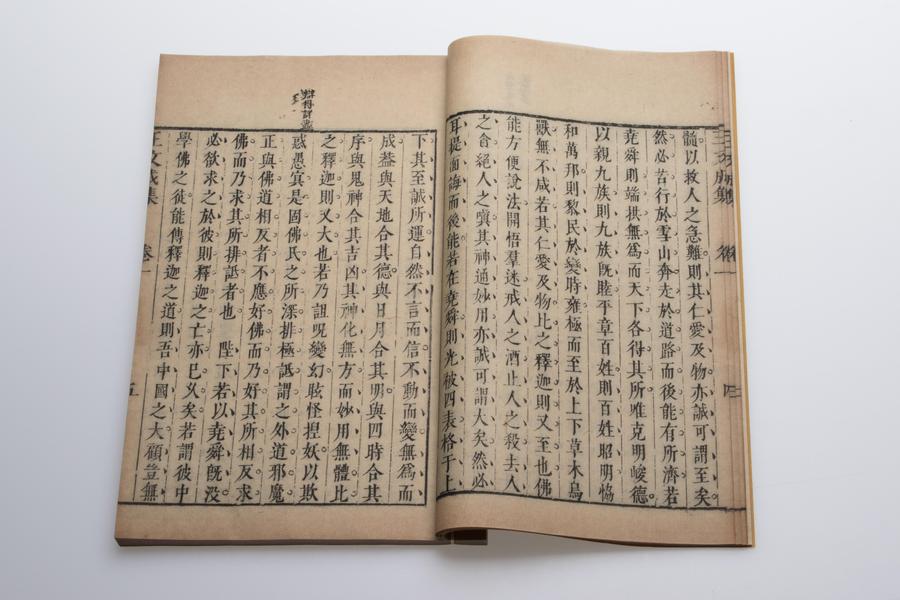 髓以救人之急難則其仁愛及物亦誠可謂至矣
然必苦行於雪山奔走於道路而後能有所濟若
堯舜則端拱無為而天下各得其所惟克明峻德
以親九族則九族旣睦平章百姓則百姓昭明恊
和萬邦則黎民於變時雍極而至於上下草木鳥
獸無不咸若其仁愛及物比之釋迦則又至也佛
能方便說法開悟羣迷戒人之酒止人之殺去人
之貪絕人之嗔其神通妙用亦誠可謂大矣然必
耳提面誨而後能若在堯舜則光被四表格于上
下其至誠所運自然不言而信不動而變無為而
成蓋與天地合其德與日月合其明與四時合其
序與鬼神合其吉凶其神化無方而妙用無體比
之釋迦則又大也若乃詛呪變幻眩怪揑妖以欺
惑愚冥是固佛氏之所深排極詆謂之外道邪魔
正與佛道相反者不應好佛而乃好其所相反求
佛而乃求其所排詆者也 陛下若以堯舜旣沒
必欲求之於彼則釋迦之亡亦已久矣若謂彼中
學佛之徒能傳釋迦之道則吾中國之大顧豈無
王文成集 卷一 五